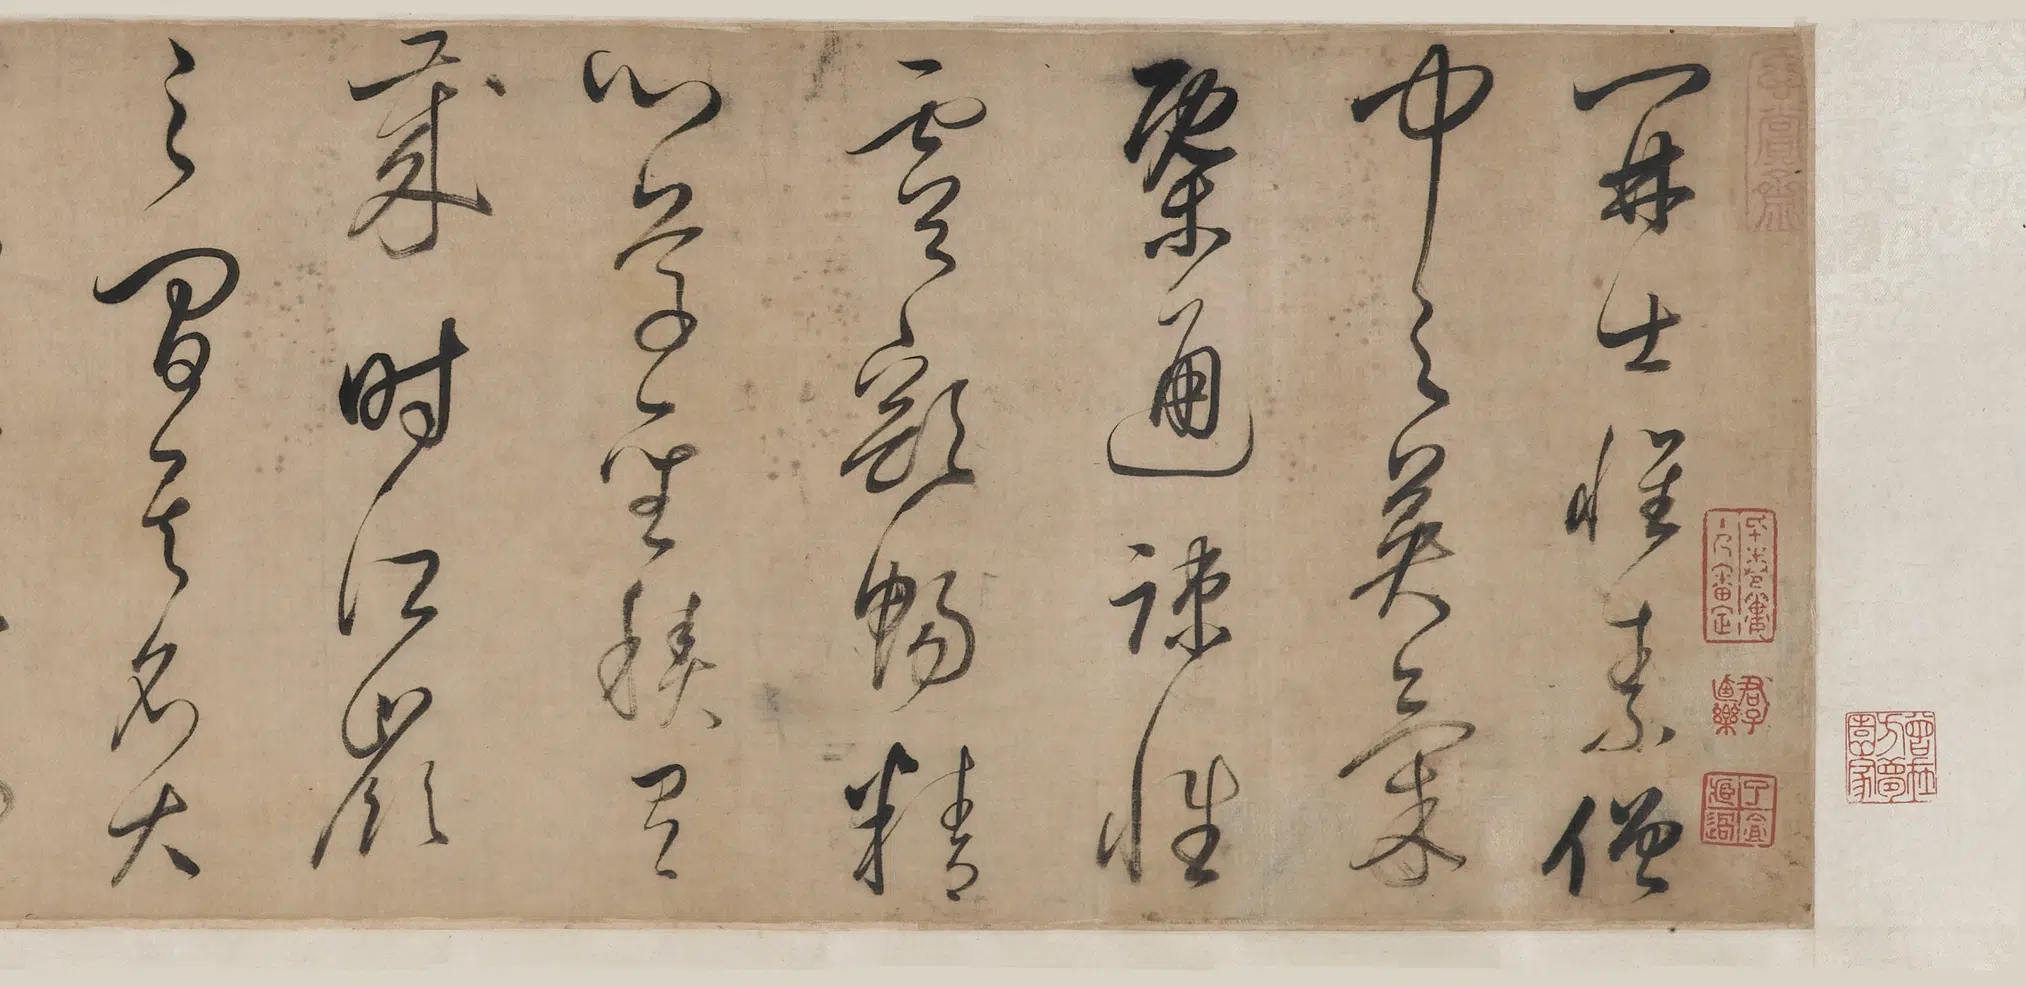 開士懷素僧
中之英氣
槩通疎性
靈豁暢精
心草聖積有
歲時江嶺
之間其名大
曾在方夢園家